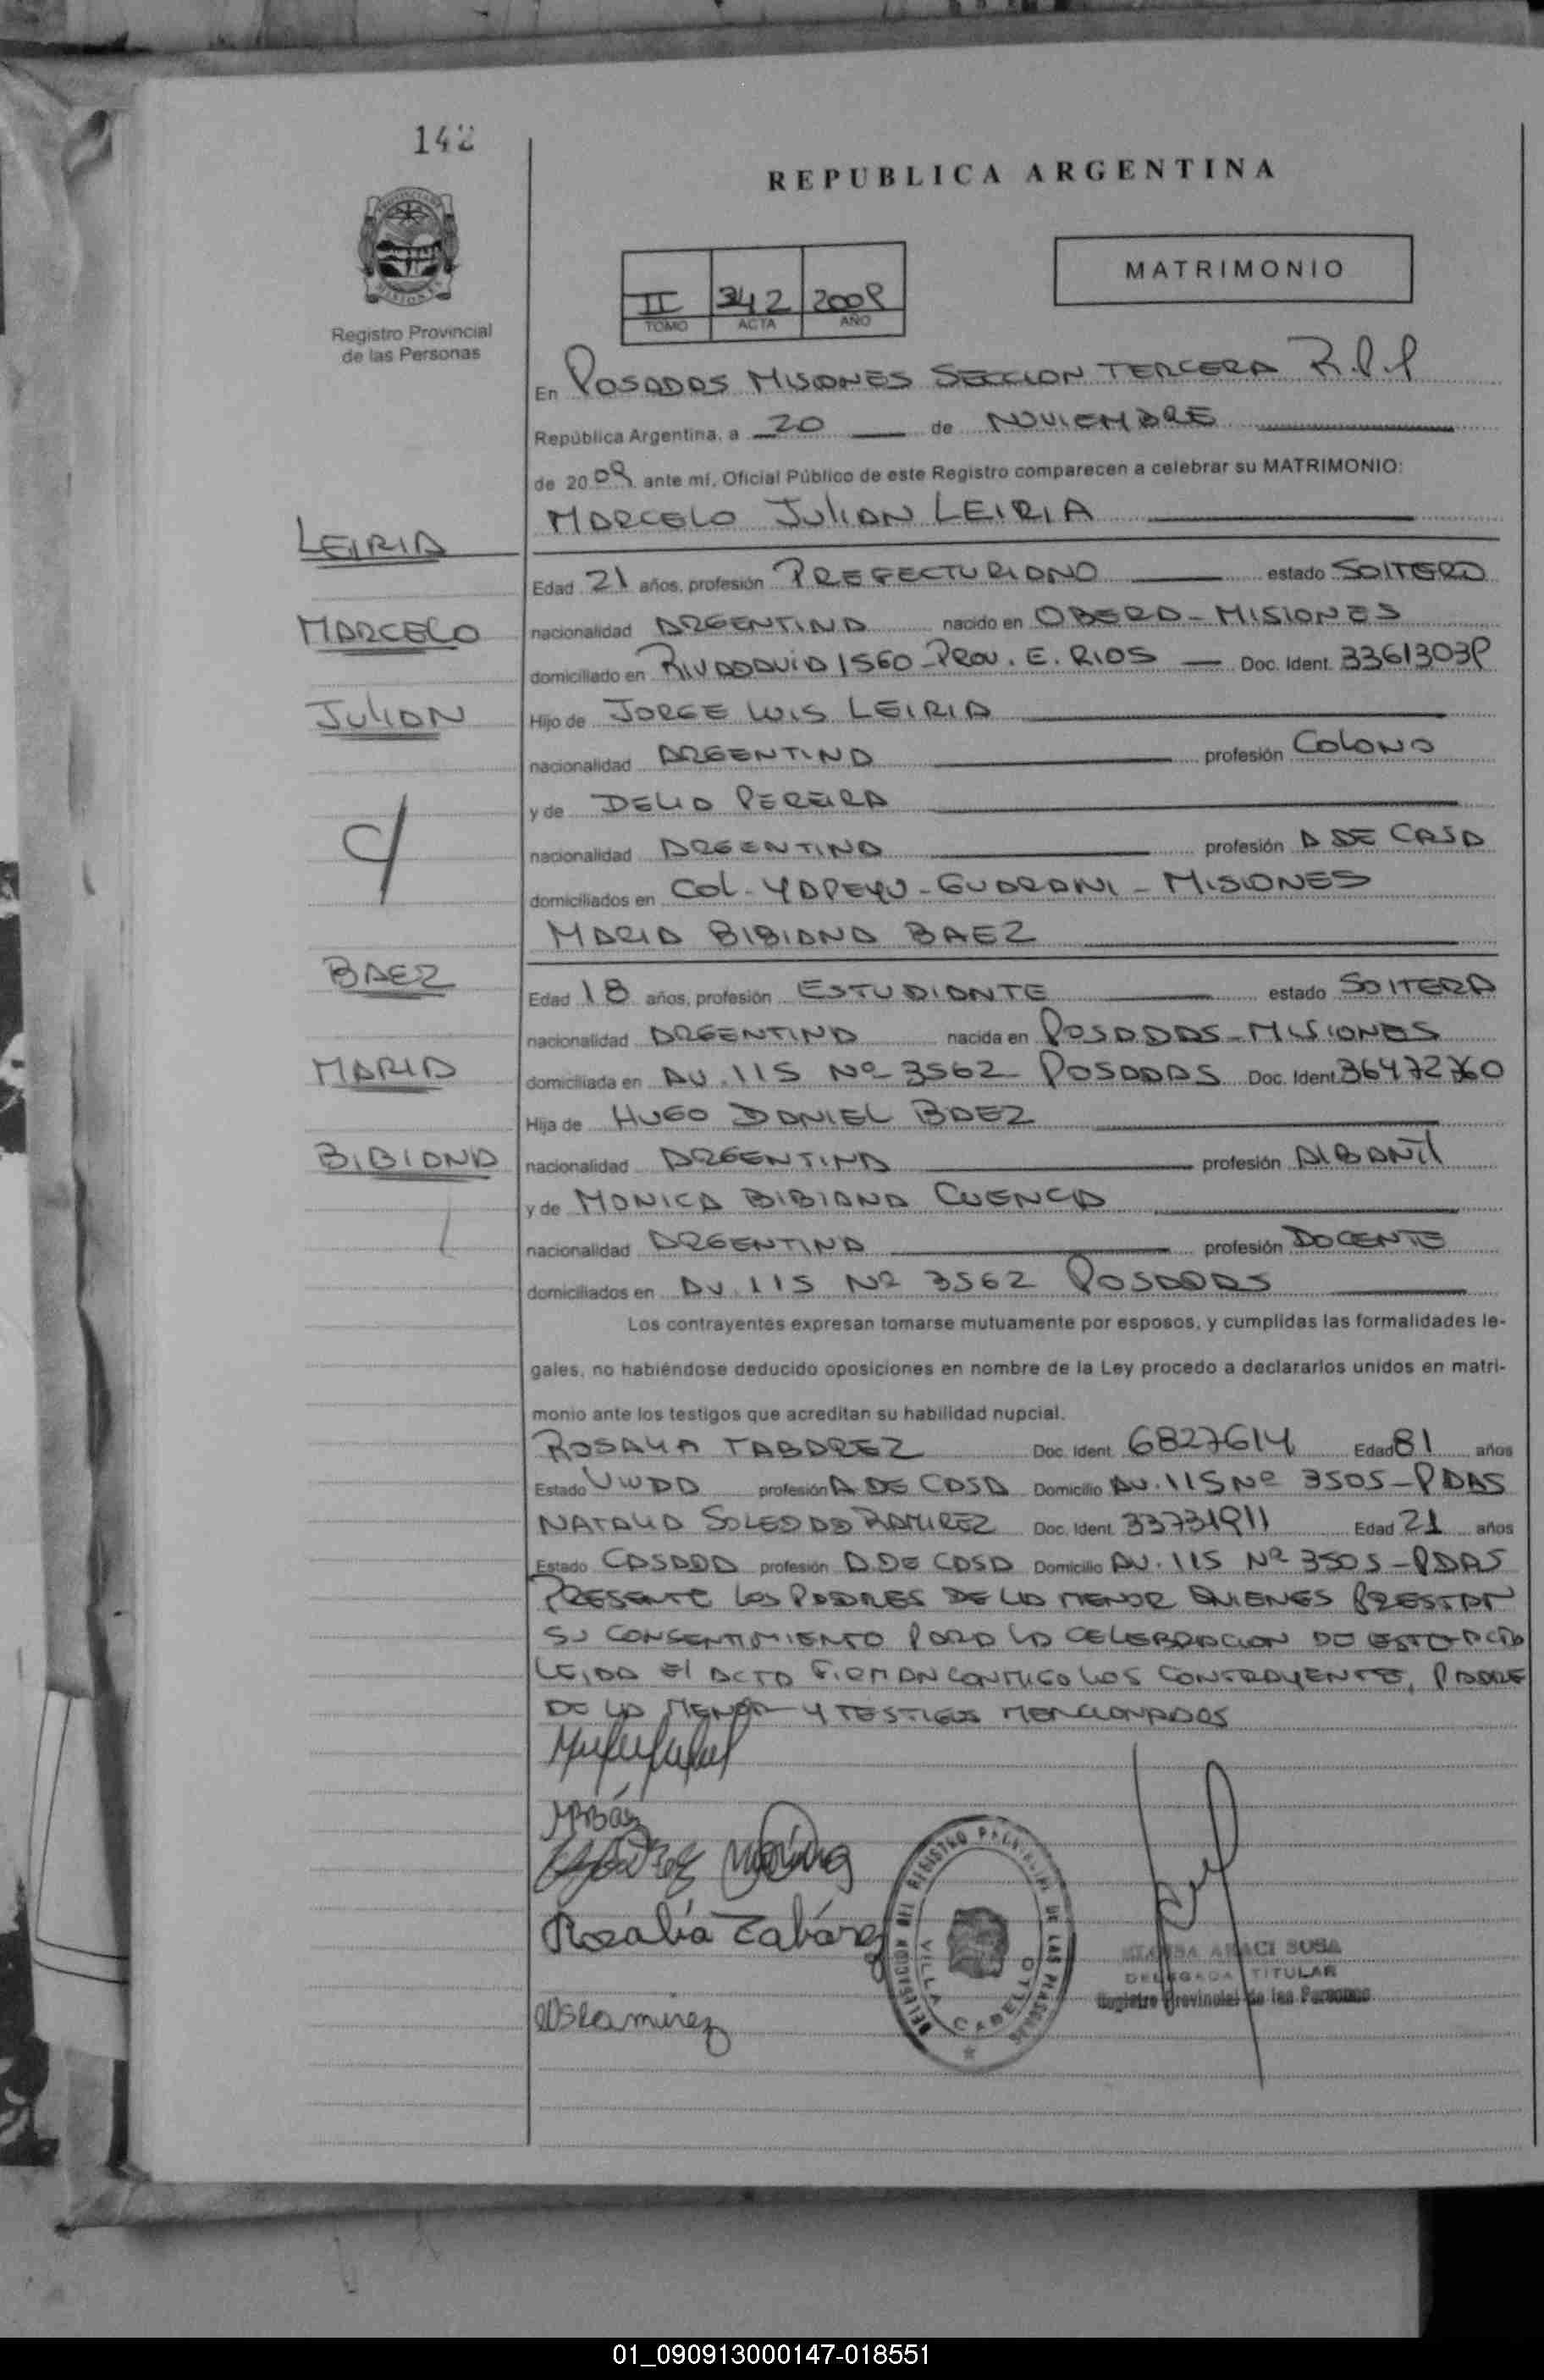 142
REPUBLICA ARGENTINA
MATRIMONIO
II 342 2009
TOMO ACTA AÑO
Registro Provincial
de las Personas
En POSADAS MISIONES SECCION TERCERA R.P.P
República Argentina, a 20 de NOVIEMBRE
de 2009 ante mí, Oficial Público de este Registro comparecen a celebrar su MATRIMONIO:
MARCELO JULIAN LEIRIA
LEIRIA
Edad 21 años, profesión PREFECTURIANO estado SOLTERO
MARCELO
nacionalidad ARGENTINA nacido en OBERA - MISIONES
domiciliado en RIVADAVIA 1560 - PROV. E. RIOS Doc. Ident. 33613039
JULIAN
Hijo de JORGE LUIS LEIRIA
nacionalidad ARGENTINA profesión COLONO
y de DELIA PEREIRA
C/
nacionalidad ARGENTINA profesión A DE CASA
domiciliados en COL. YAPEYU - GUARANI - MISIONES
MARIA BIBIANA BAEZ
BAEZ
Edad 18 años, profesión ESTUDIANTE estado SOLTERA
nacionalidad ARGENTINA nacida en POSADAS - MISIONES
MARIA
domiciliada en AV. 115 Nº 3562 - POSADAS Doc. Ident. 36472760
Hija de HUGO DANIEL BAEZ
BIBIANA
nacionalidad ARGENTINA profesión ALBAÑIL
y de MONICA BIBIANA CUENCA
nacionalidad ARGENTINA profesión DOCENTE
domiciliados en AV. 115 Nº 3562 POSADAS
Los contrayentes expresan tomarse mutuamente por esposos, y cumplidas las formalidades le-
gales, no habiéndose deducido oposiciones en nombre de la Ley procedo a declararlos unidos en matri-
monio ante los testigos que acreditan su habilidad nupcial.
ROSALIA TABAREZ Doc. Ident. 6827614 Edad 81 años
Estado VIUDA profesión A DE CASA Domicilio AV. 115 Nº 3505 - PDAS
NATALIA SOLEDAD RAMIREZ Doc. Ident. 33731911 Edad 21 años
Estado CASADA profesión A. DE CASA Domicilio AV. 115 Nº 3505 - PDAS
PRESENTE LOS PADRES DE LA MENOR QUIENES PRESTAN
SU CONSENTIMIENTO PARA LA CELEBRACION DE ESTE ACTO
LEIDA EL ACTA FIRMAN CONMIGO LOS CONTRAYENTE, PADRE
DE LA MENOR Y TESTIGOS MENCIONADOS
MBBáez
Rosalía Tabárez
NSRamirez
DELEGACION DEL REGISTRO PROVINCIAL DE LAS PERSONAS
VILLA CABELLO
ARACI SOSA
DELEGADA TITULAR
Registro Provincial de las Personas
01_090913000147-018551